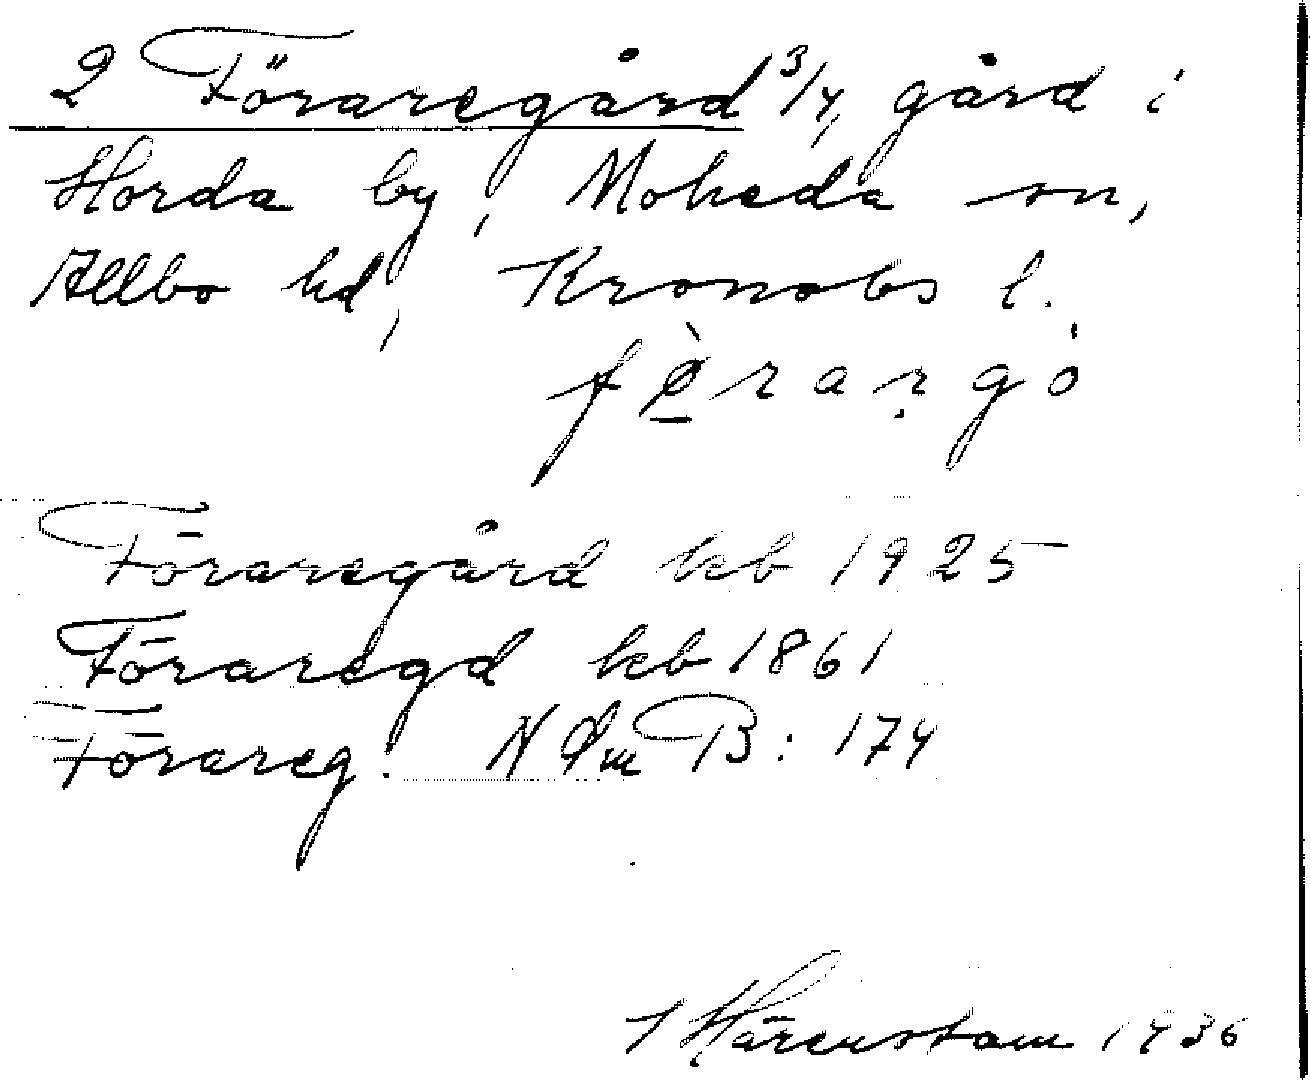 2 Föraregård 3/4, gård i
Horda by, Moheda sn,
Allbo hd, Kronobs l.
fø̱̀rarg
Föraregård kb 1925
Föraregd kb 1861
Förareg. N Øm B: 174
Härenstam 1936